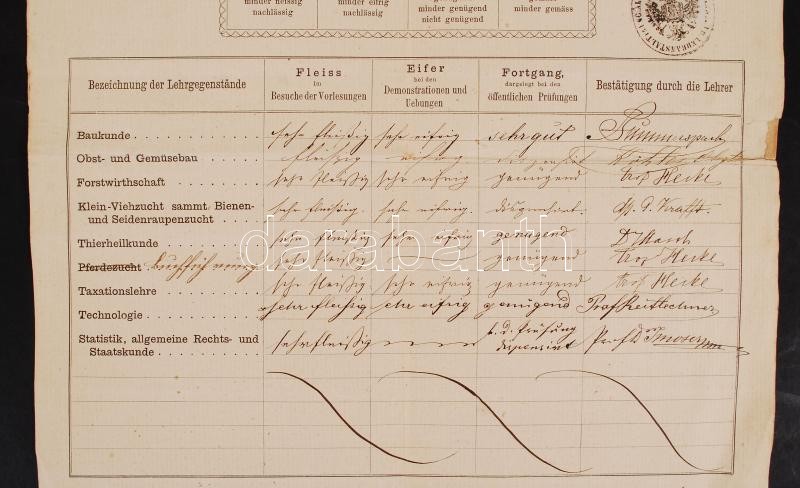 minder fleissig minder eifrig minder genügend minder gemäss
nachlässig nachlässig nicht genügend
Bezeichnung der Lehrgegenstände
Fleiss
im
Besuche der Vorlesungen
Eifer
bei den
Demonstrationen und
Uebungen
Fortgang,
dargelegt bei den
öffentlichen Prüfungen
Bestätigung durch die Lehrer
Baukunde sehr fleißig sehr eifrig sehr gut
Obst- und Gemüsebau fleißig eifrig dispensirt
Forstwirthschaft sehr fleißig sehr eifrig genügend Prof Hecke
Klein-Viehzucht sammt Bienen-
und Seidenraupenzucht sehr fleißig. sehr eifrig. dispensirt. Dr. G. Krafft.
Thierheilkunde sehr fleißig sehr eifrig genügend
Pferdezucht sehr fleißig genügend Prof Hecke
Taxationslehre sehr fleißig sehr eifrig genügend Prof Hecke
Technologie sehr fleißig sehr eifrig genügend Prof
Statistik, allgemeine Rechts- und
Staatskunde sehr fleißig v. d. Prüfung
dispensirt Prof Dr
darabanth